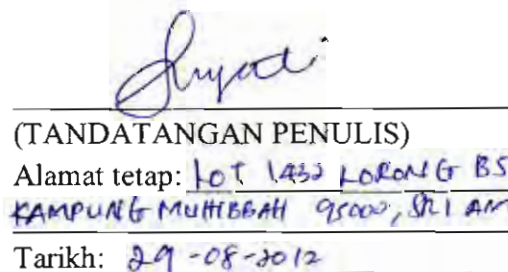 (TANDATANGAN PENULIS)
Alamat tetap: LOT 1432 LORONG B5
KAMPUNG MUHIBBAH 95000, SRI AM
Tarikh: 29-08-2012